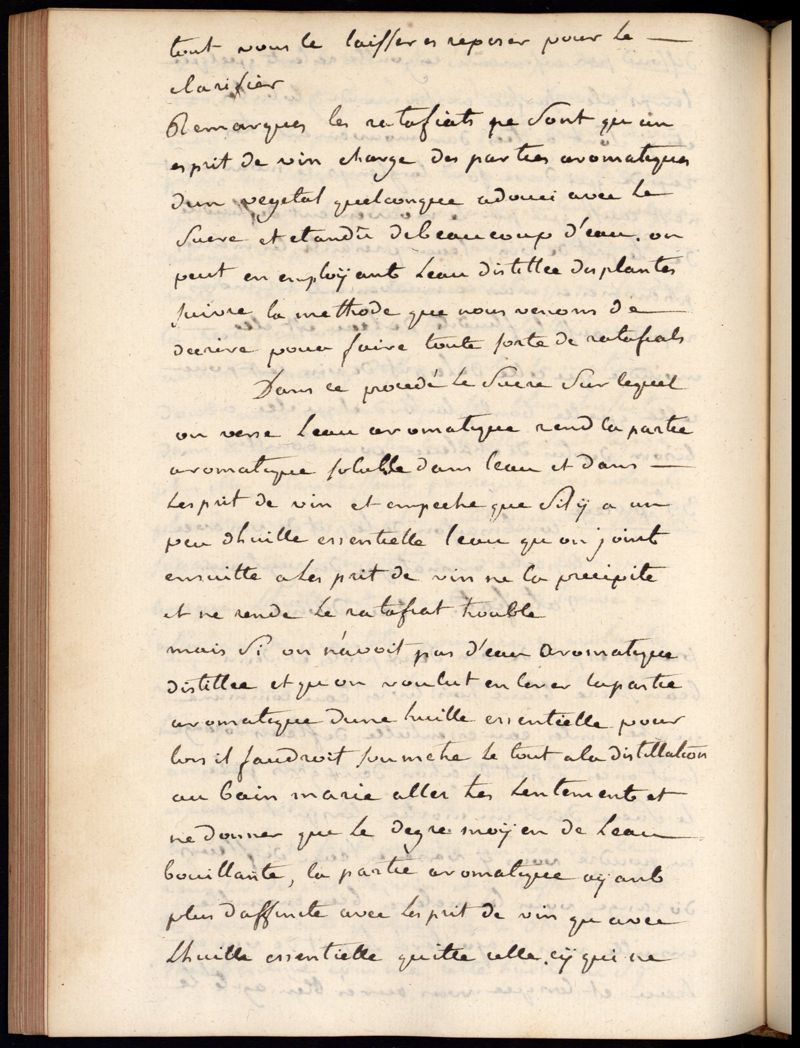 tout vous le laisseres reposer pour le
clarifier
Remarques les ratafiats ne sont qu'un
esprit de vin chargé des parties aromatiques
dun vegetal quelconque adouci avec le
sucre et etandu de beaucoup d'eau. on
peut en employant leau distillée des plantes
suivre la methode que nous venons de
decrire pour faire toute sorte de ratafiats
Dans ce procedé le sucre sur lequel
on verse leau aromatique rend la partie
aromatique soluble dans leau et dans
lesprit de vin et empeche que sil ÿ a un
peu dhuille essentielle leau qu on joint
ensuitte a lesprit de vin ne la precipite
et ne rende le ratafiat trouble
mais si on n'avoit pas d'eau aromatique
distillée et qu on voulut enlever la partie
aromatique dune huille essentielle pour
lors il faudroit soumetre le tout a la distillation
au bain marie aller tes lentement et
ne donner que le degre moÿen de leau
bouillante, la partie aromatique aÿant
plus daffinite avec lesprit de vin qu avec
lhuille essentielle quitte celle cÿ qui ne